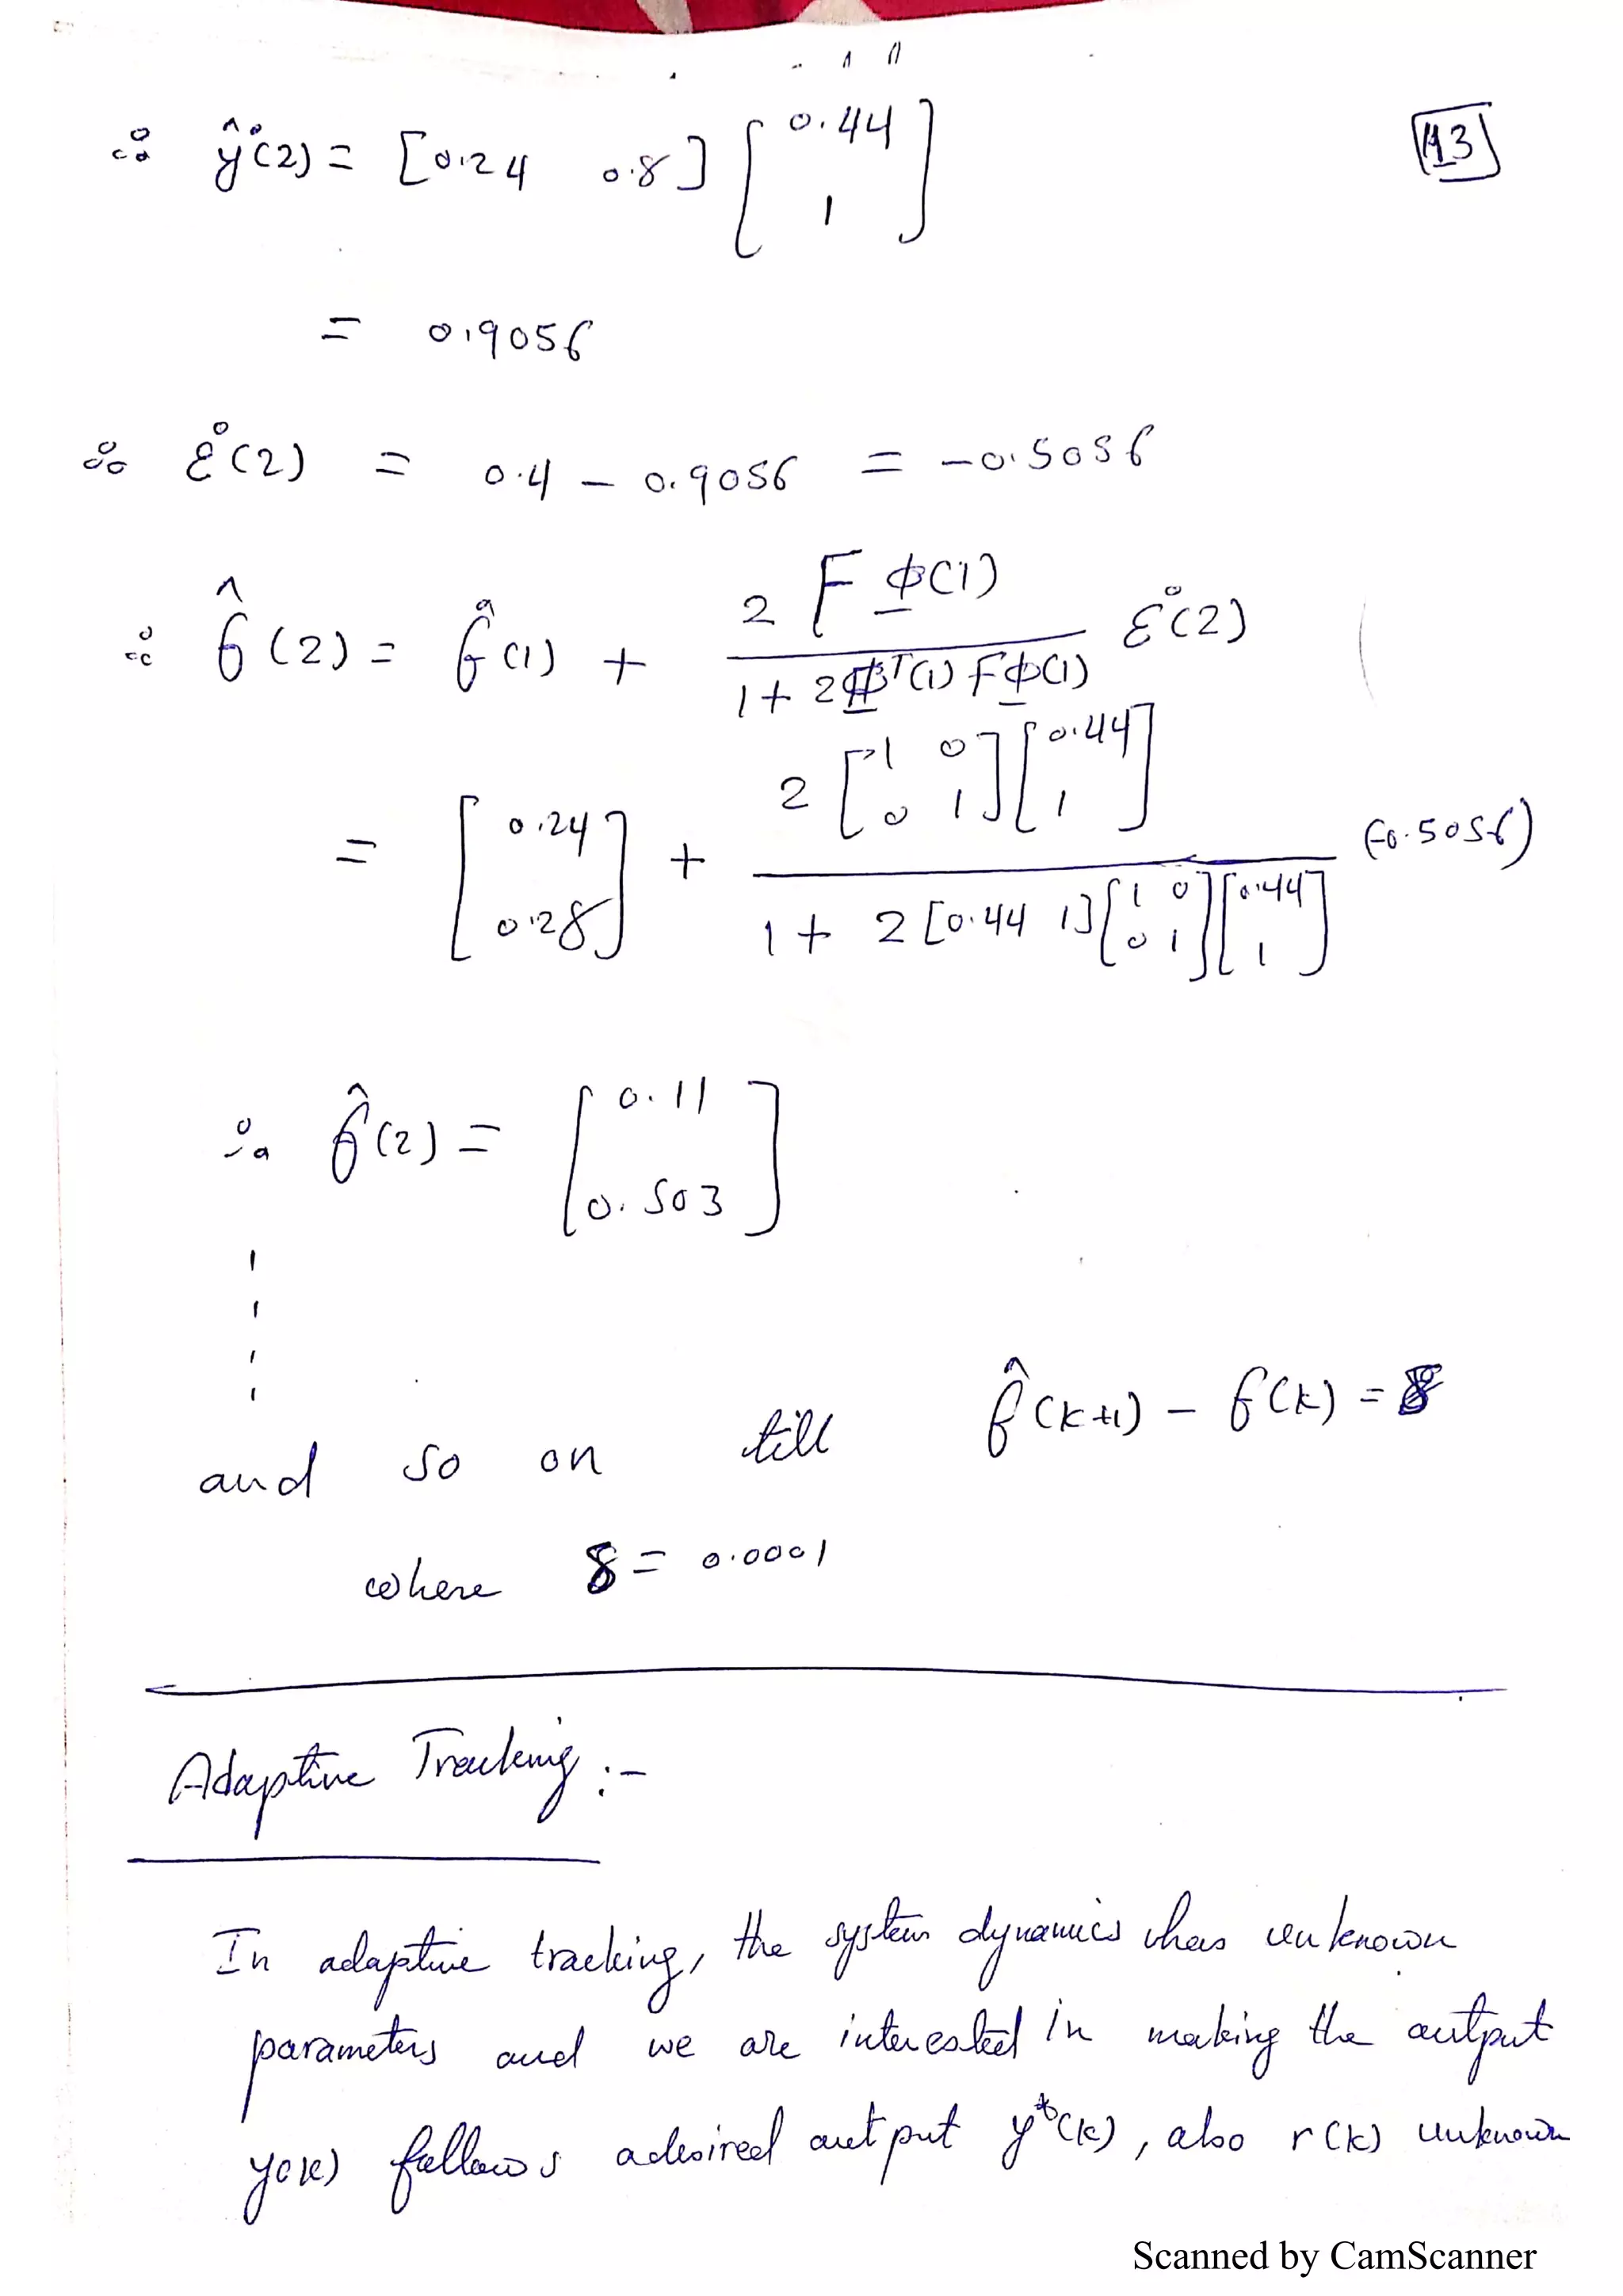 ∴ ŷ°(2) = [0.24 0.8] [0.44 1]
[43]
= 0.9056
∴ ε°(2) = 0.4 - 0.9056 = -0.5056
∴ θ̂(2) = θ̂(1) + 2 F Φ(1) / 1 + 2Φᵀ(1) F Φ(1) ε°(2)
= [0.24 0.28] + 2 [1 0 0 1] [0.44 1] / 1 + 2 [0.44 1] [1 0 0 1] [0.44 1] (-0.5056)
∴ θ̂(2) = [0.11 0.503]
and so on till θ̂(k+1) - θ(k) = δ
where δ = 0.0001
Adaptive Tracking :-
In adaptive tracking, the system dynamics has unknown
parameters and we are interested in making the output
y(k) follows a desired output y*(k), also r(k) unknown
Scanned by CamScanner